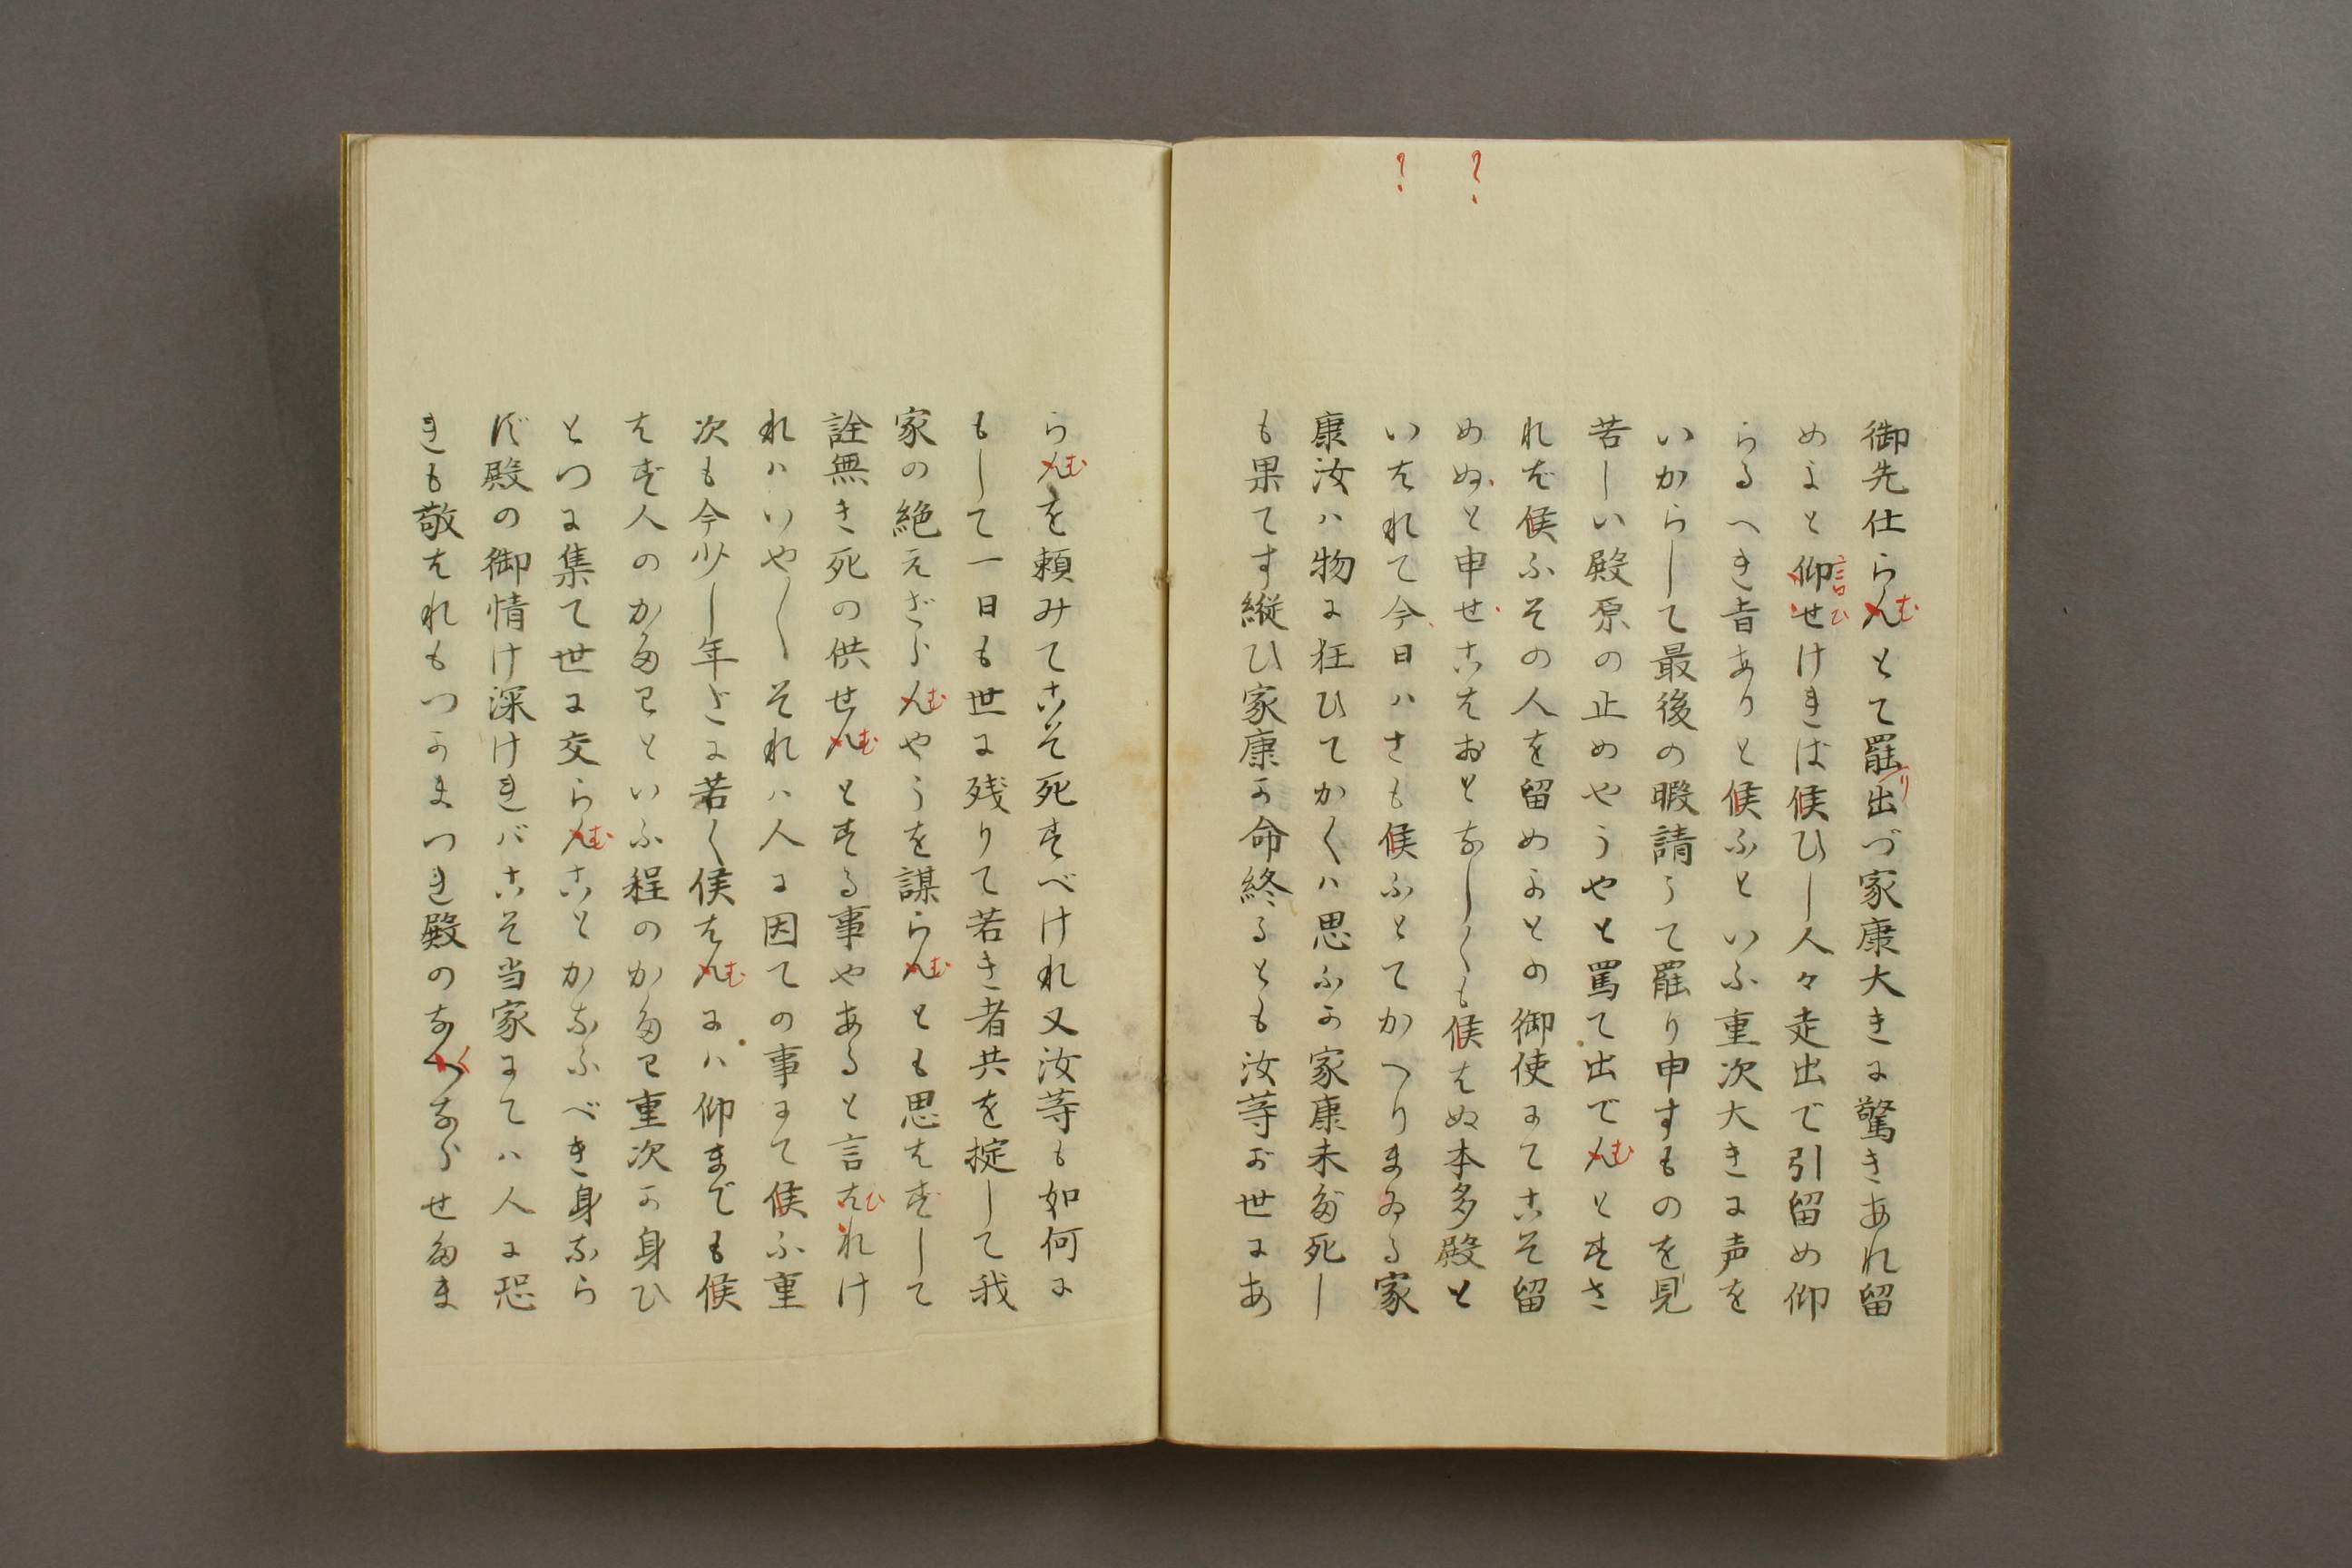 御先仕らんとて罷出づ家康大きに驚きあれ留
めよと仰せけれは候ひし人々走出で引留め仰
らるへき旨ありと候ふといふ重次大きに声を
いからして最後の暇請うて罷り申すものを見
苦しい殿原の止めやうやと罵て出でんとすさ
れば候ふその人を留めよとの御使にてこそ留
めぬと申せこはおとなし〱も候はぬ本多殿と
いはれて今日ハさも候ふとてかへりまゐる家
康汝ハ物に狂ひてかくハ思ふか家康未た死し
も果てす縦ひ家康か命終るとも汝等が世にあ
らんを頼みてこそ死すべけれ又汝等も如何に
もして一日も世に残りて若き者共を掟して我
家の絶えざらんやうを謀らんとも思はずして
詮無き死の供せんとする事やあると言はれけ
れハいや〱それハ人に因ての事にて候ふ重
次も今少し年だに若く候はんにハ仰までも候
はず人のかたわといふ程のかたわ重次か身ひ
とつに集て世に交らんことかなふべき身なら
ず殿の御情け深けれバこそ当家にてハ人に恐
れも敬はれもつかまつれ殿のなくならせたま